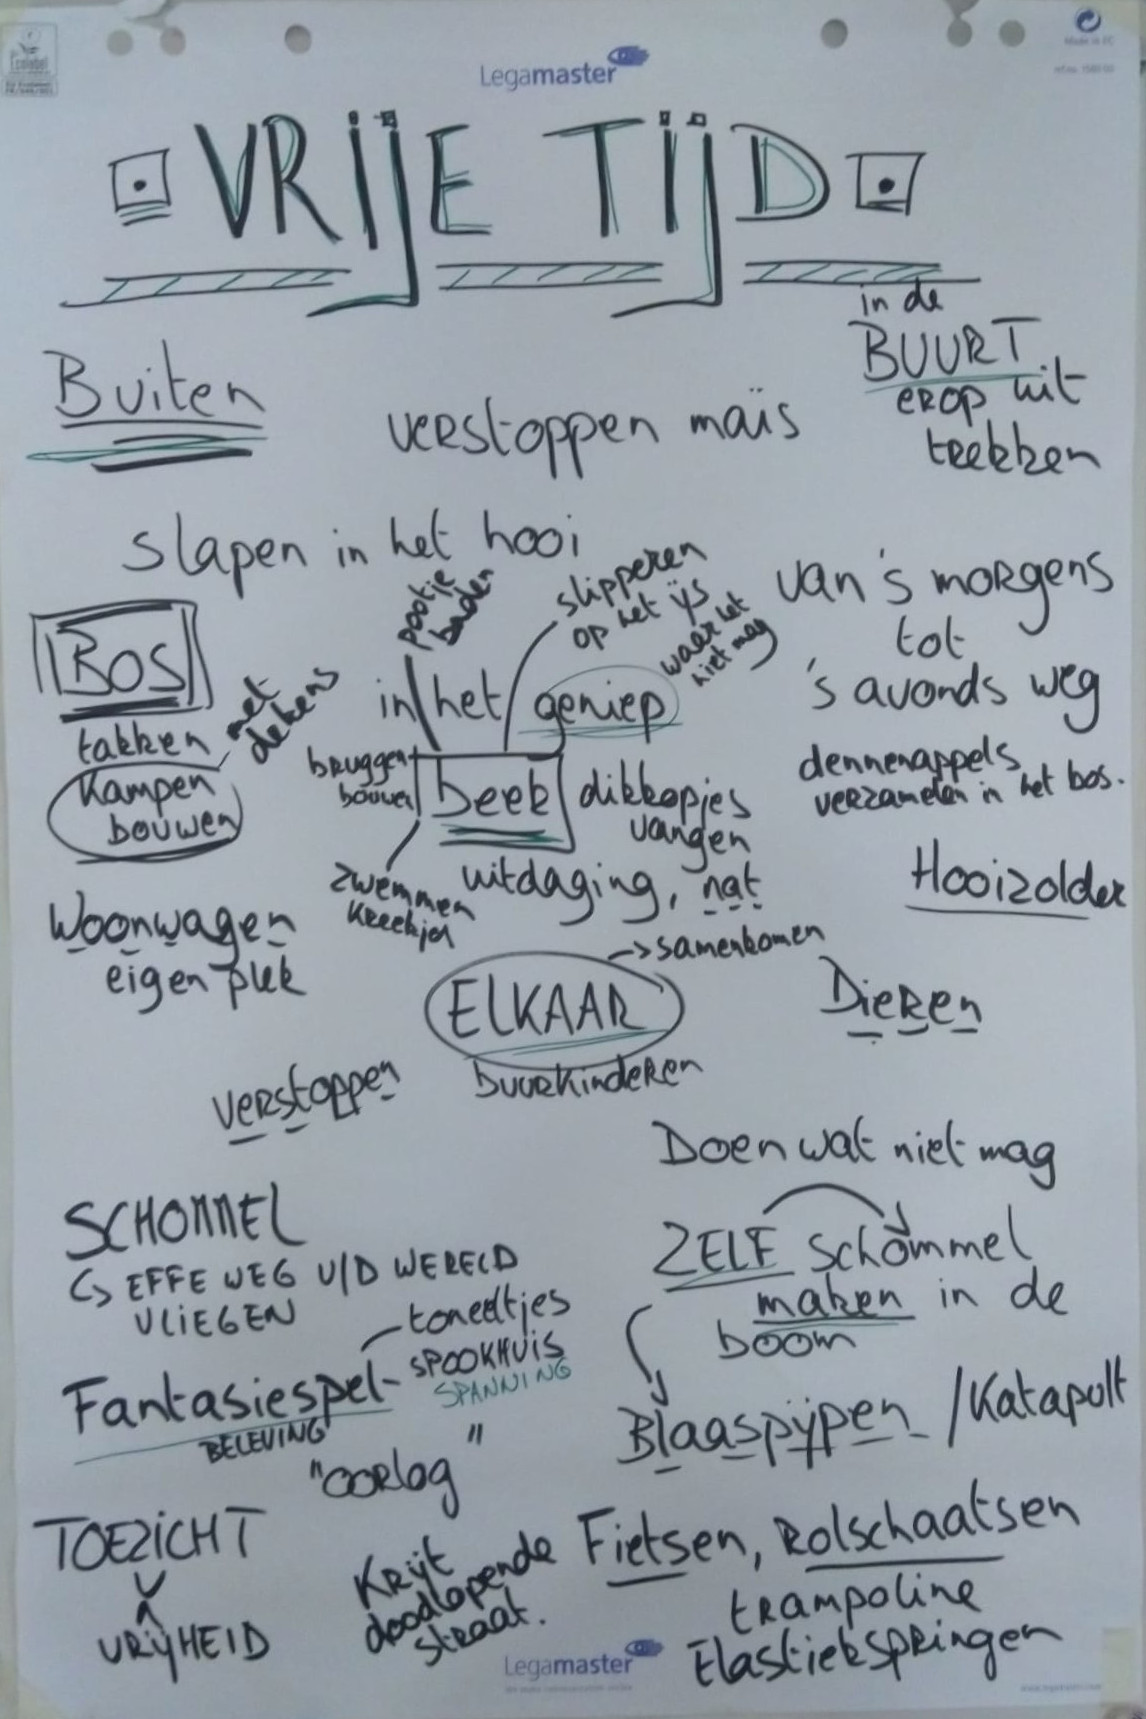 Legamaster
VRIJE TIJD
in de
BUURT
erop uit
trekken
Buiten
verstoppen maïs
slapen in het hooi
pootje
baden
slipperen
op het ijs
waar het
niet mag
van 's morgens
tot
's avonds weg
BOS
takken
met
dekens
Kampen
bouwen
in het geniep
bruggen
bouwen
beek
dikkopjes
vangen
dennenappels
verzamelen in het bos.
zwemmen
uitdaging, nat
Hooizolder
Woonwagen
eigen plek
ELKAAR
-> samenkomen
buurkinderen
Dieren
verstoppen
Doen wat niet mag
SCHOMMEL
EFFE WEG U/D WERELD
VLIEGEN
ZELF schommel
maken in de
boom
Fantasiespel
toneeltjes
SPOOKHUIS
SPANNING
BELEVING
"oorlog"
Blaaspijpen / Katapult
TOEZICHT
VRIJHEID
Krijt
doodlopende
straat.
Fietsen, Rolschaatsen
trampoline
Elastiekspringen
Legamaster